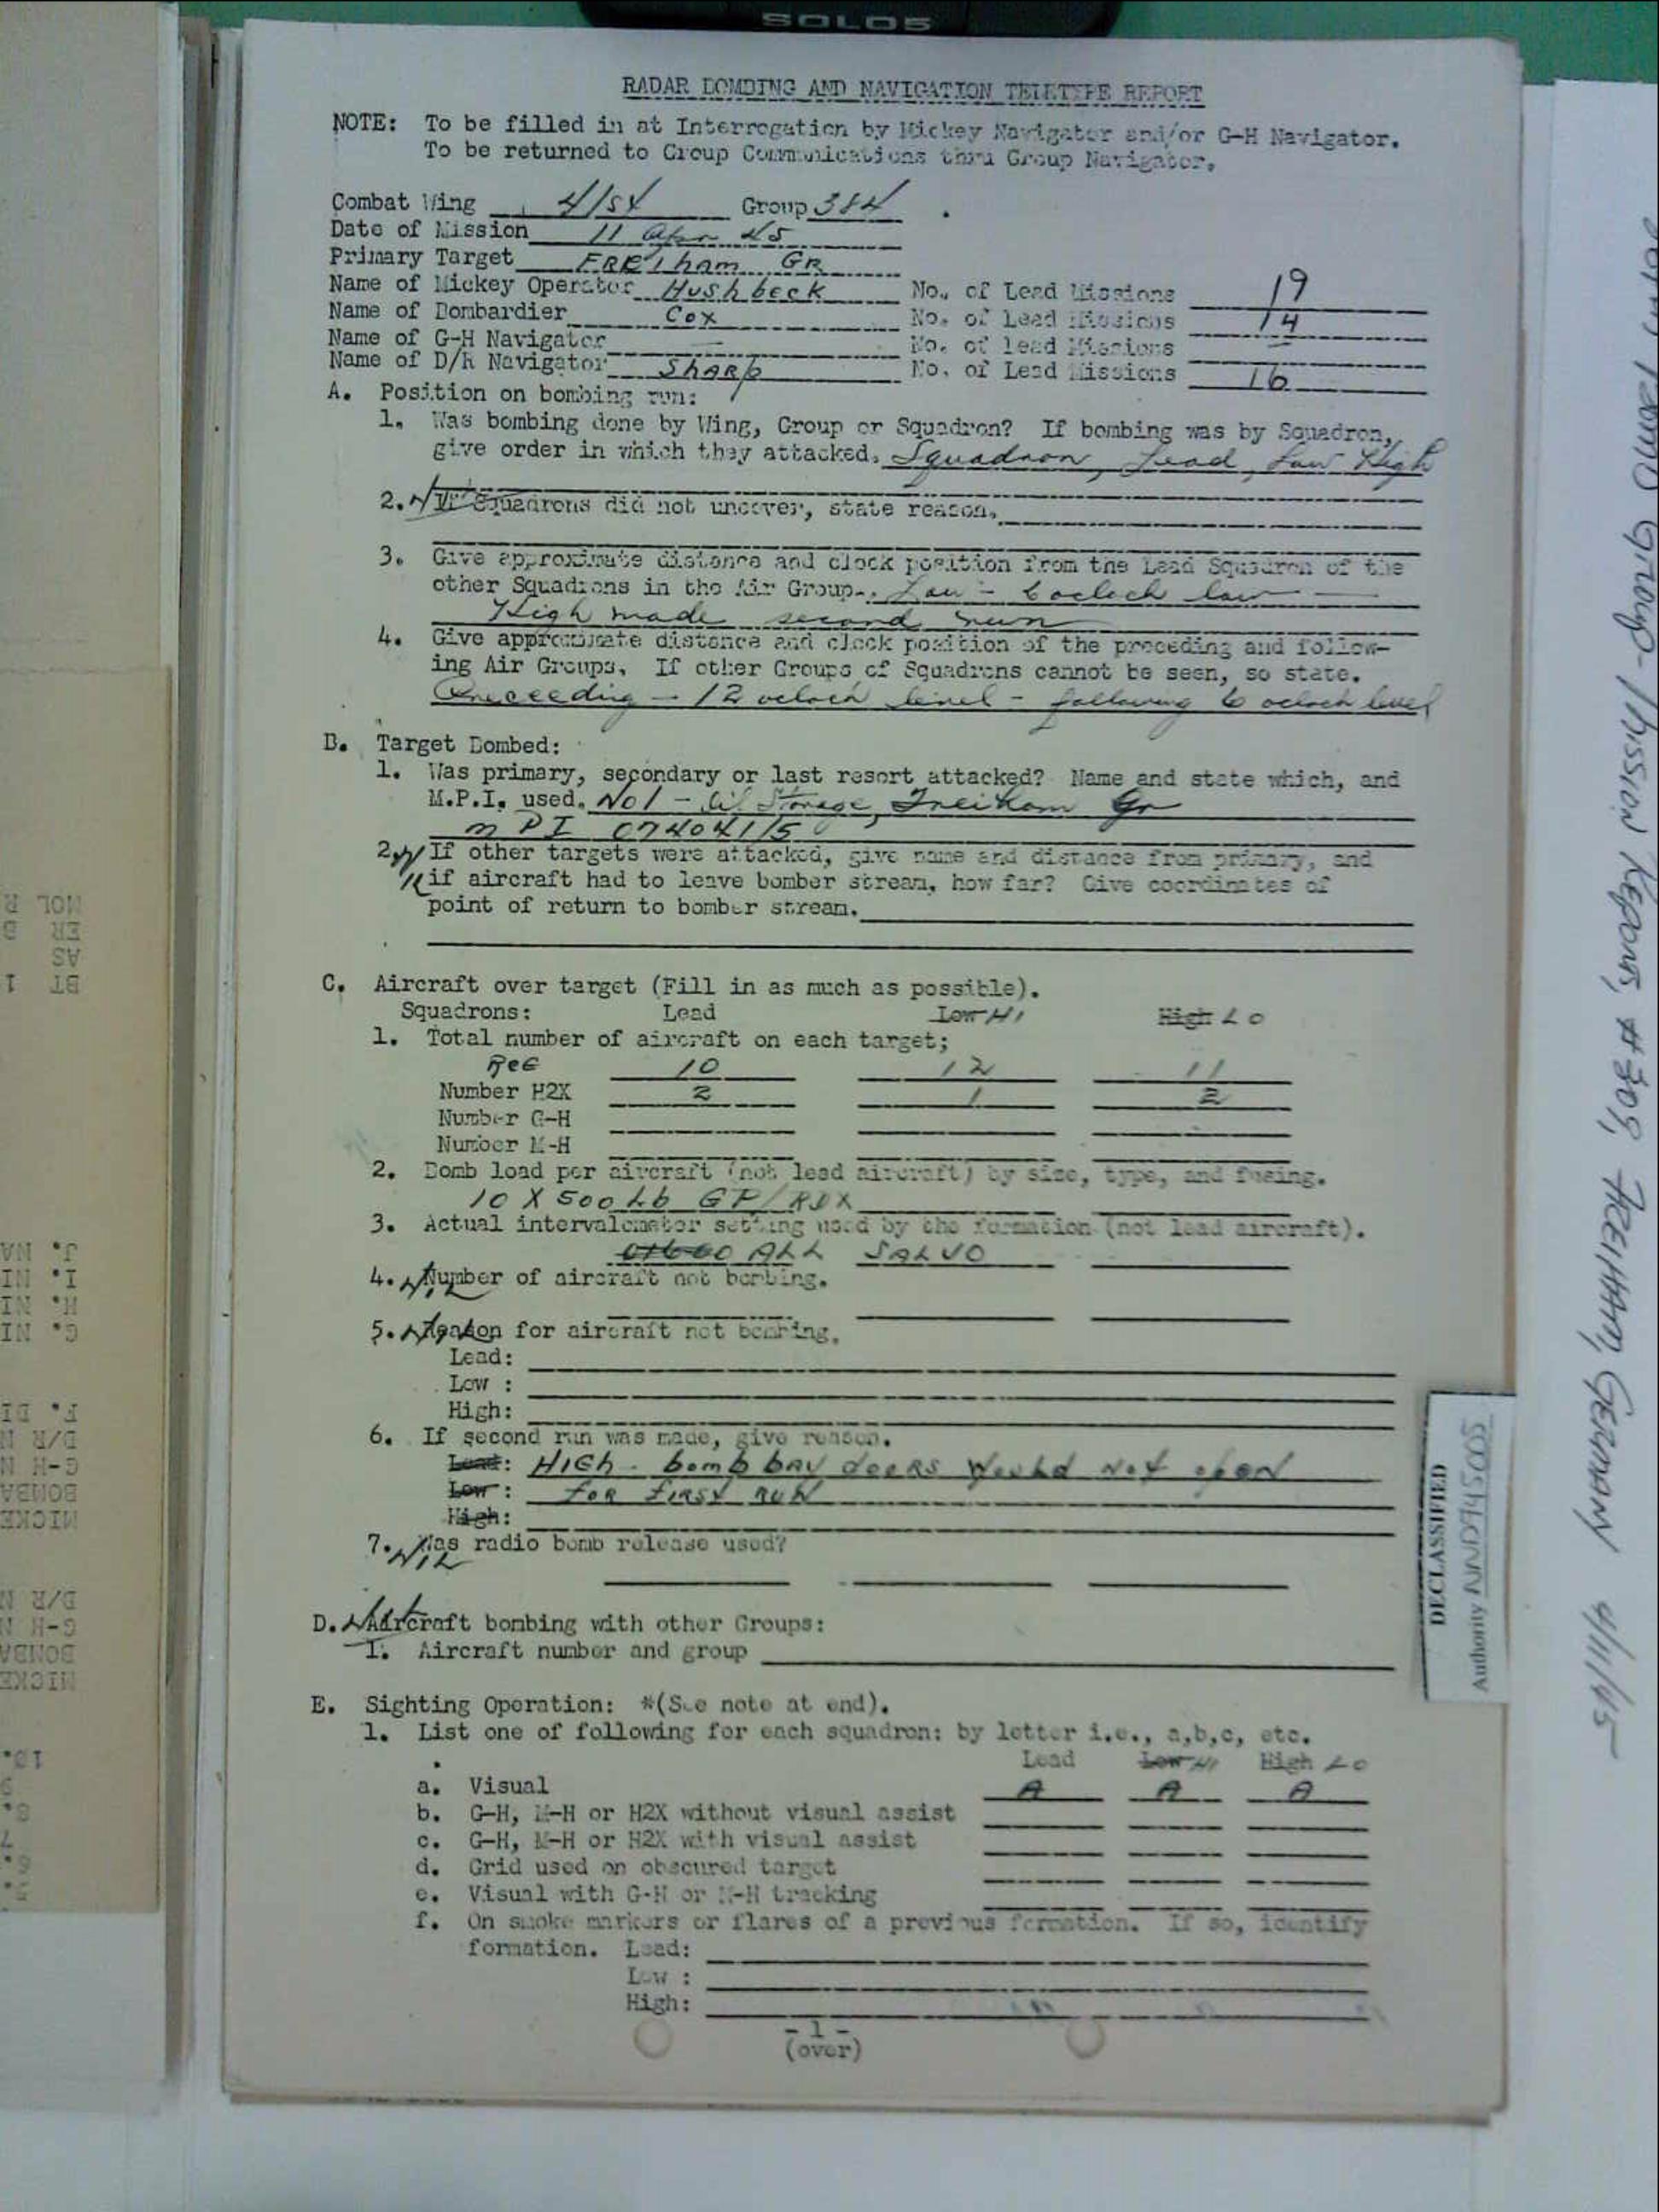 SOLO5
RADAR BOMBING AND NAVIGATION TELETYPE REPORT
NOTE: To be filled in at Interrogation by Mickey Navigator and/or G-H Navigator.
To be returned to Group Communications thru Group Navigator.
Combat Wing 41st Group 384
Date of Mission 11 Apr 45
Primary Target FREIham GR
Name of Mickey Operator Hushbeck No. of Lead Missions 19
Name of Bombardier Cox No. of Lead Missions 14
Name of G-H Navigator — No. of Lead Missions —
Name of D/R Navigator Sharp No. of Lead Missions 16
A. Position on bombing run:
1. Was bombing done by Wing, Group or Squadron? If bombing was by Squadron,
give order in which they attacked. Squadron, Lead, Low High
2. If Squadrons did not uncover, state reason.
3. Give approximate distance and clock position from the Lead Squadron of the
other Squadrons in the Air Group. Low - 6 oclock low —
High made second run
4. Give approximate distance and clock position of the preceding and follow-
ing Air Groups. If other Groups of Squadrons cannot be seen, so state.
Preceeding - 12 oclock level - following 6 oclock level
B. Target Bombed:
1. Was primary, secondary or last resort attacked? Name and state which, and
M.P.I. used. No 1 - Oil Storage, Freiham Gr
MPI 074041/5
2. If other targets were attacked, give name and distance from primary, and
if aircraft had to leave bomber stream, how far? Give coordinates of
point of return to bomber stream.
C. Aircraft over target (Fill in as much as possible).
Squadrons: Lead Low HI High LO
1. Total number of aircraft on each target;
10 12 11
Number H2X 2 1 2
Number G-H
Number M-H
2. Bomb load per aircraft (not lead aircraft) by size, type, and fusing.
10 X 500 Lb GP/RDX
3. Actual intervalometer setting used by the formation (not lead aircraft).
ALL SALVO
4. Nil Number of aircraft not bombing.
5. Reason for aircraft not bombing.
Lead:
Low :
High:
6. If second run was made, give reason.
Lead: HIGH - bomb bay doors would not open
Low : for first run
High:
7. Nil Was radio bomb release used?
D. Aircraft bombing with other Groups:
1. Aircraft number and group
E. Sighting Operation: *(See note at end).
1. List one of following for each squadron: by letter i.e., a,b,c, etc.
Lead Low HI High LO
a. Visual A A A
b. G-H, M-H or H2X without visual assist
c. G-H, M-H or H2X with visual assist
d. Grid used on obscured target
e. Visual with G-H or M-H tracking
f. On smoke markers or flares of a previous formation. If so, identify
formation. Lead:
Low :
High:
- 1 -
(over)
DECLASSIFIED
Authority NND745005
Group - Mission Reports, #309, FREIHAM, GERMANY 4/11/45